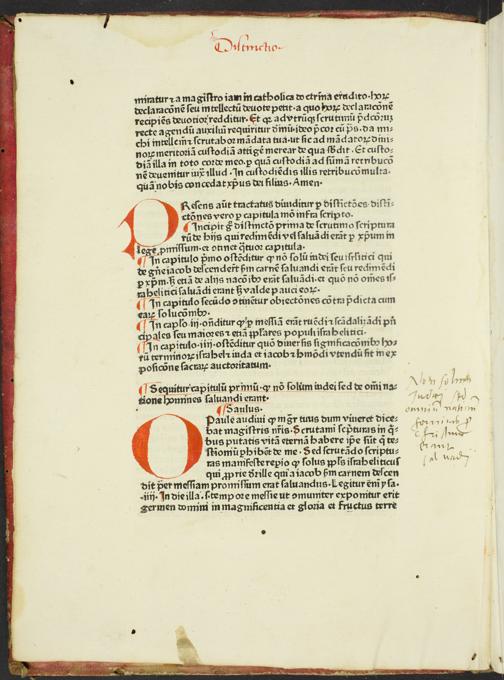 Distinctio
miratur ⁊ a magistro iam in catholica doctrina erudito. hoꝝ
declaracōnē seu intellectū deuote petit. a quo hoꝝ declaracōne
recipiēs deuotiꝰ redditur. Et qꝛ ad vtrūqꝫ scrutiniū
recte agendū auxiliū requiritur diuinū ideo p̄cor cū ps. da mi
chi intellcm̄ ⁊ scrutabor mādata tua. ut sic ad mādatoꝝ diui
noꝝ meritoriā custodiā attīgē merear de qua sb̄dit. Et custo
diā illa in toto corde meo. p̱ quā custodiā ad sūmā retribucō
nē deuenitur illud. In custodiēdis illis retribucō multa.
quā nobis concedat xp̄us dei filius. Amen.
PResens aūt tractatus diuiditur p̱ distictōes. disti
ctōnes vero p̱ capitula mō infra scripto.
¶ Incipit distinctō prima de scrutinio scriptura
rū de hijs qui redimēdi vel saluādi erāt p̱ xp̄um in
lege ꝓmissum. et ꝯtinet qtuor capitula.
¶ In capitulo pͥmo ostēditur qͥ nō solū iudei seu isrlitici qui
de gn̄e iacob descenderūt scꝫm carnē saluandi erāt seu redimēdi
p̱ xpm. sꝫ etiā de alijs nacōibꝫ erāt saluādi. et qͥ nō om̄es is
rahelitici saluādi erant sꝫ valde pauci eoꝝ.
¶ In capitulo secūdo ꝯtinētur obiectiones contra p̄dicta cum
eaꝝ solucōibꝫ.
¶ In caplo .iij. on̄ditur qͥ messiā erāt ruēdi ⁊ scādalizādi
cipales seu maiores ⁊ etiā populi israhelitici.
¶ In capitulo .iiij. ostēditur quō diuersis significacōibꝫ ho
rū terminoꝝ israhel iuda et iacob ⁊ hm̄odi vtendū sit in ex
posicōne sacraꝝ auctoritatum.
¶ Sequitur capitulū primū. qͥ nō solum iudei sed de om̄i na
tione homines saluandi erant.
¶ Saulus.
O Paule audiui qͥ mgr̄ tuus dum viueret dice
bat magistris nr̄is. Scrutami scpturas in q̄
bus putatis vitā eternā habere ipse sūt q̄ te
stioniū phibēt de me. Sed scrutādo scriptu
ras manifeste repio qͥ solus ppls israheliticus
qui ꝓprie dr̄ ille qui a iacob scꝫm carnem descen
dit per messiam promissum erat saluandus. Legitur eni p̱ysa.
.iiij. In die illa. s. tempore messie ut omniter exponitur erit
germen domini in magnificentia et gloria et fructus terre
Non solum
Iudei sed
omnium nationum
homines p̱
christum
erant
saluandi